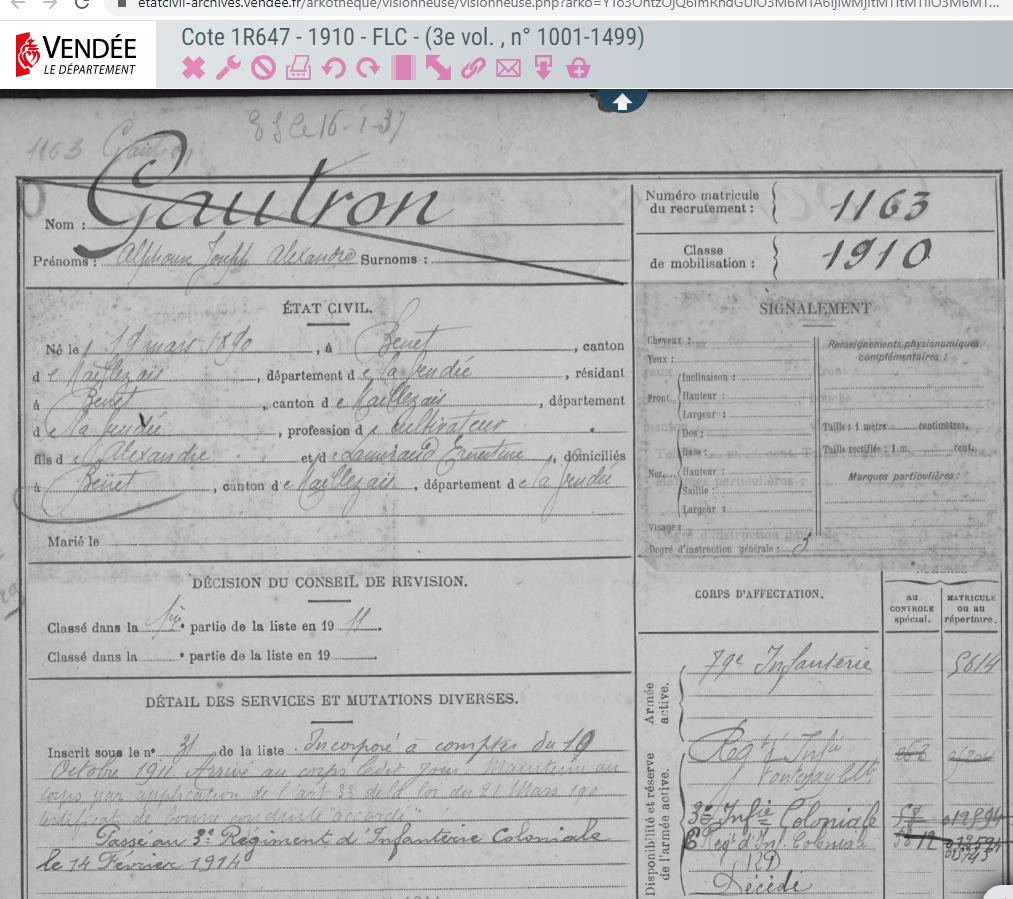 etatcivil-archives.vendee.fr/arkotheque/visionneuse/visionneuse.php?arko=
VENDÉE
LE DÉPARTEMENT
Cote 1R647 - 1910 - FLC - (3e vol. , n° 1001-1499)
16-1-37
1163
Nom : Gautron
Prénoms : Alphonse Joseph Alexandre Surnoms :
Numéro matricule du recrutement : 1163
Classe de mobilisation : 1910
ÉTAT CIVIL.
Né le mars 1890, à Benet, canton
de Maillezais, département de la Vendée, résidant
à Benet, canton de Maillezais, département
de la Vendée, profession de cultivateur
fils de Alexandre et de Ernestine, domiciliés
à Benet, canton de Maillezais, département de la Vendée
Marié le
SIGNALEMENT
Cheveux :
Yeux :
Front
Inclinaison :
Hauteur :
Largeur :
Nez
Dos :
Base :
Hauteur :
Saillie :
Largeur :
Visage :
Degré d'instruction générale : 3
Renseignements physionomiques complémentaires :
Taille : 1 mètre centimètres.
Taille rectifiée : 1 m. cent.
Marques particulières :
DÉCISION DU CONSEIL DE REVISION.
Classé dans la partie de la liste en 1911.
Classé dans la partie de la liste en 19
DÉTAIL DES SERVICES ET MUTATIONS DIVERSES.
Inscrit sous le n° 31 de la liste. Incorporé à compter du 10
Octobre 1911. Arrivé au corps le dit jour. Maintenu au
corps par application de l'art 33 de la loi du 21 Mars 190
certificat de bonne conduite accordé
Passé au 3e Régiment d'Infanterie Coloniale
le 14 Fevrier 1914
CORPS D'AFFECTATION.
NUMÉROS
au CONTROLE spécial.
MATRICULE ou au répertoire.
Armée active.
79e Infanterie 5614
Disponibilité et réserve de l'armée active.
Regt Infie
Fontenay
3e Infie Coloniale
Regt d'Inf. Coloniale
Décédé